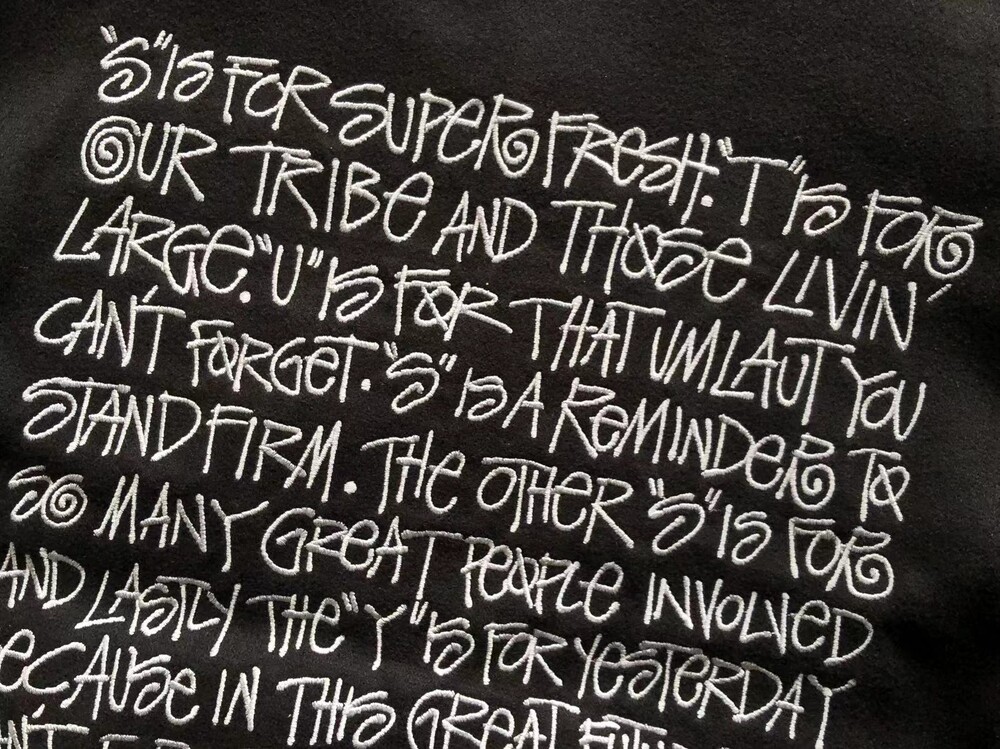 "S" IS FOR SUPER FRESH. "T" IS FOR
OUR TRIBE AND THOSE LIVIN'
LARGE. "U" IS FOR THAT UMLAUT YOU
CAN'T FORGET. "S" IS A REMINDER TO
STAND FIRM. THE OTHER "S" IS FOR
SO MANY GREAT PEOPLE INVOLVED
AND LASTLY THE "Y" IS FOR YESTERDAY
ECAUSE IN THIS GREAT